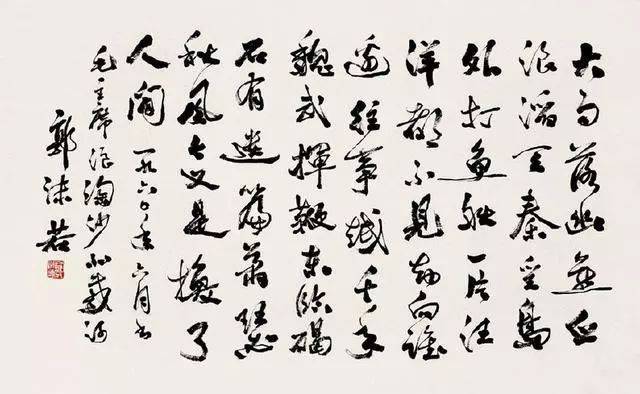 大雨落幽燕白
浪滔天秦皇島
外打魚船一片汪
洋都不見知向誰
邊往事越千年
魏武揮鞭東臨碣
石有遺篇蕭瑟
秋風今又是換了
人間 一九六〇年六月书
毛主席浪淘沙北戴河
郭沫若